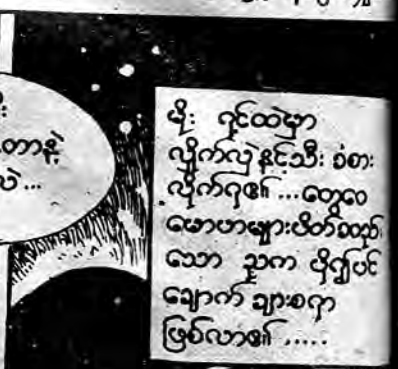 တာနဲ့
လဲ...
မိုး ရင်ထဲမှာ
လှိုက်လှဲနင့်သီး ခံစား
လိုက်ရ၏ ...တွေဝေ
မောဟများပိတ်ဆို့
သော ညက ပို၍ပင်
ချောက် ချားစရာ
ဖြစ်လာ၏ .....